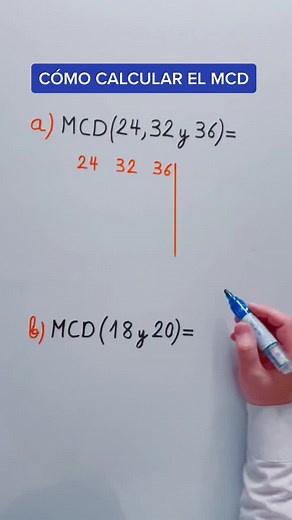 CÓMO CALCULAR EL MCD
a) MCD(24,32 y 36)=
24 32 36
b) MCD(18 y 20)=